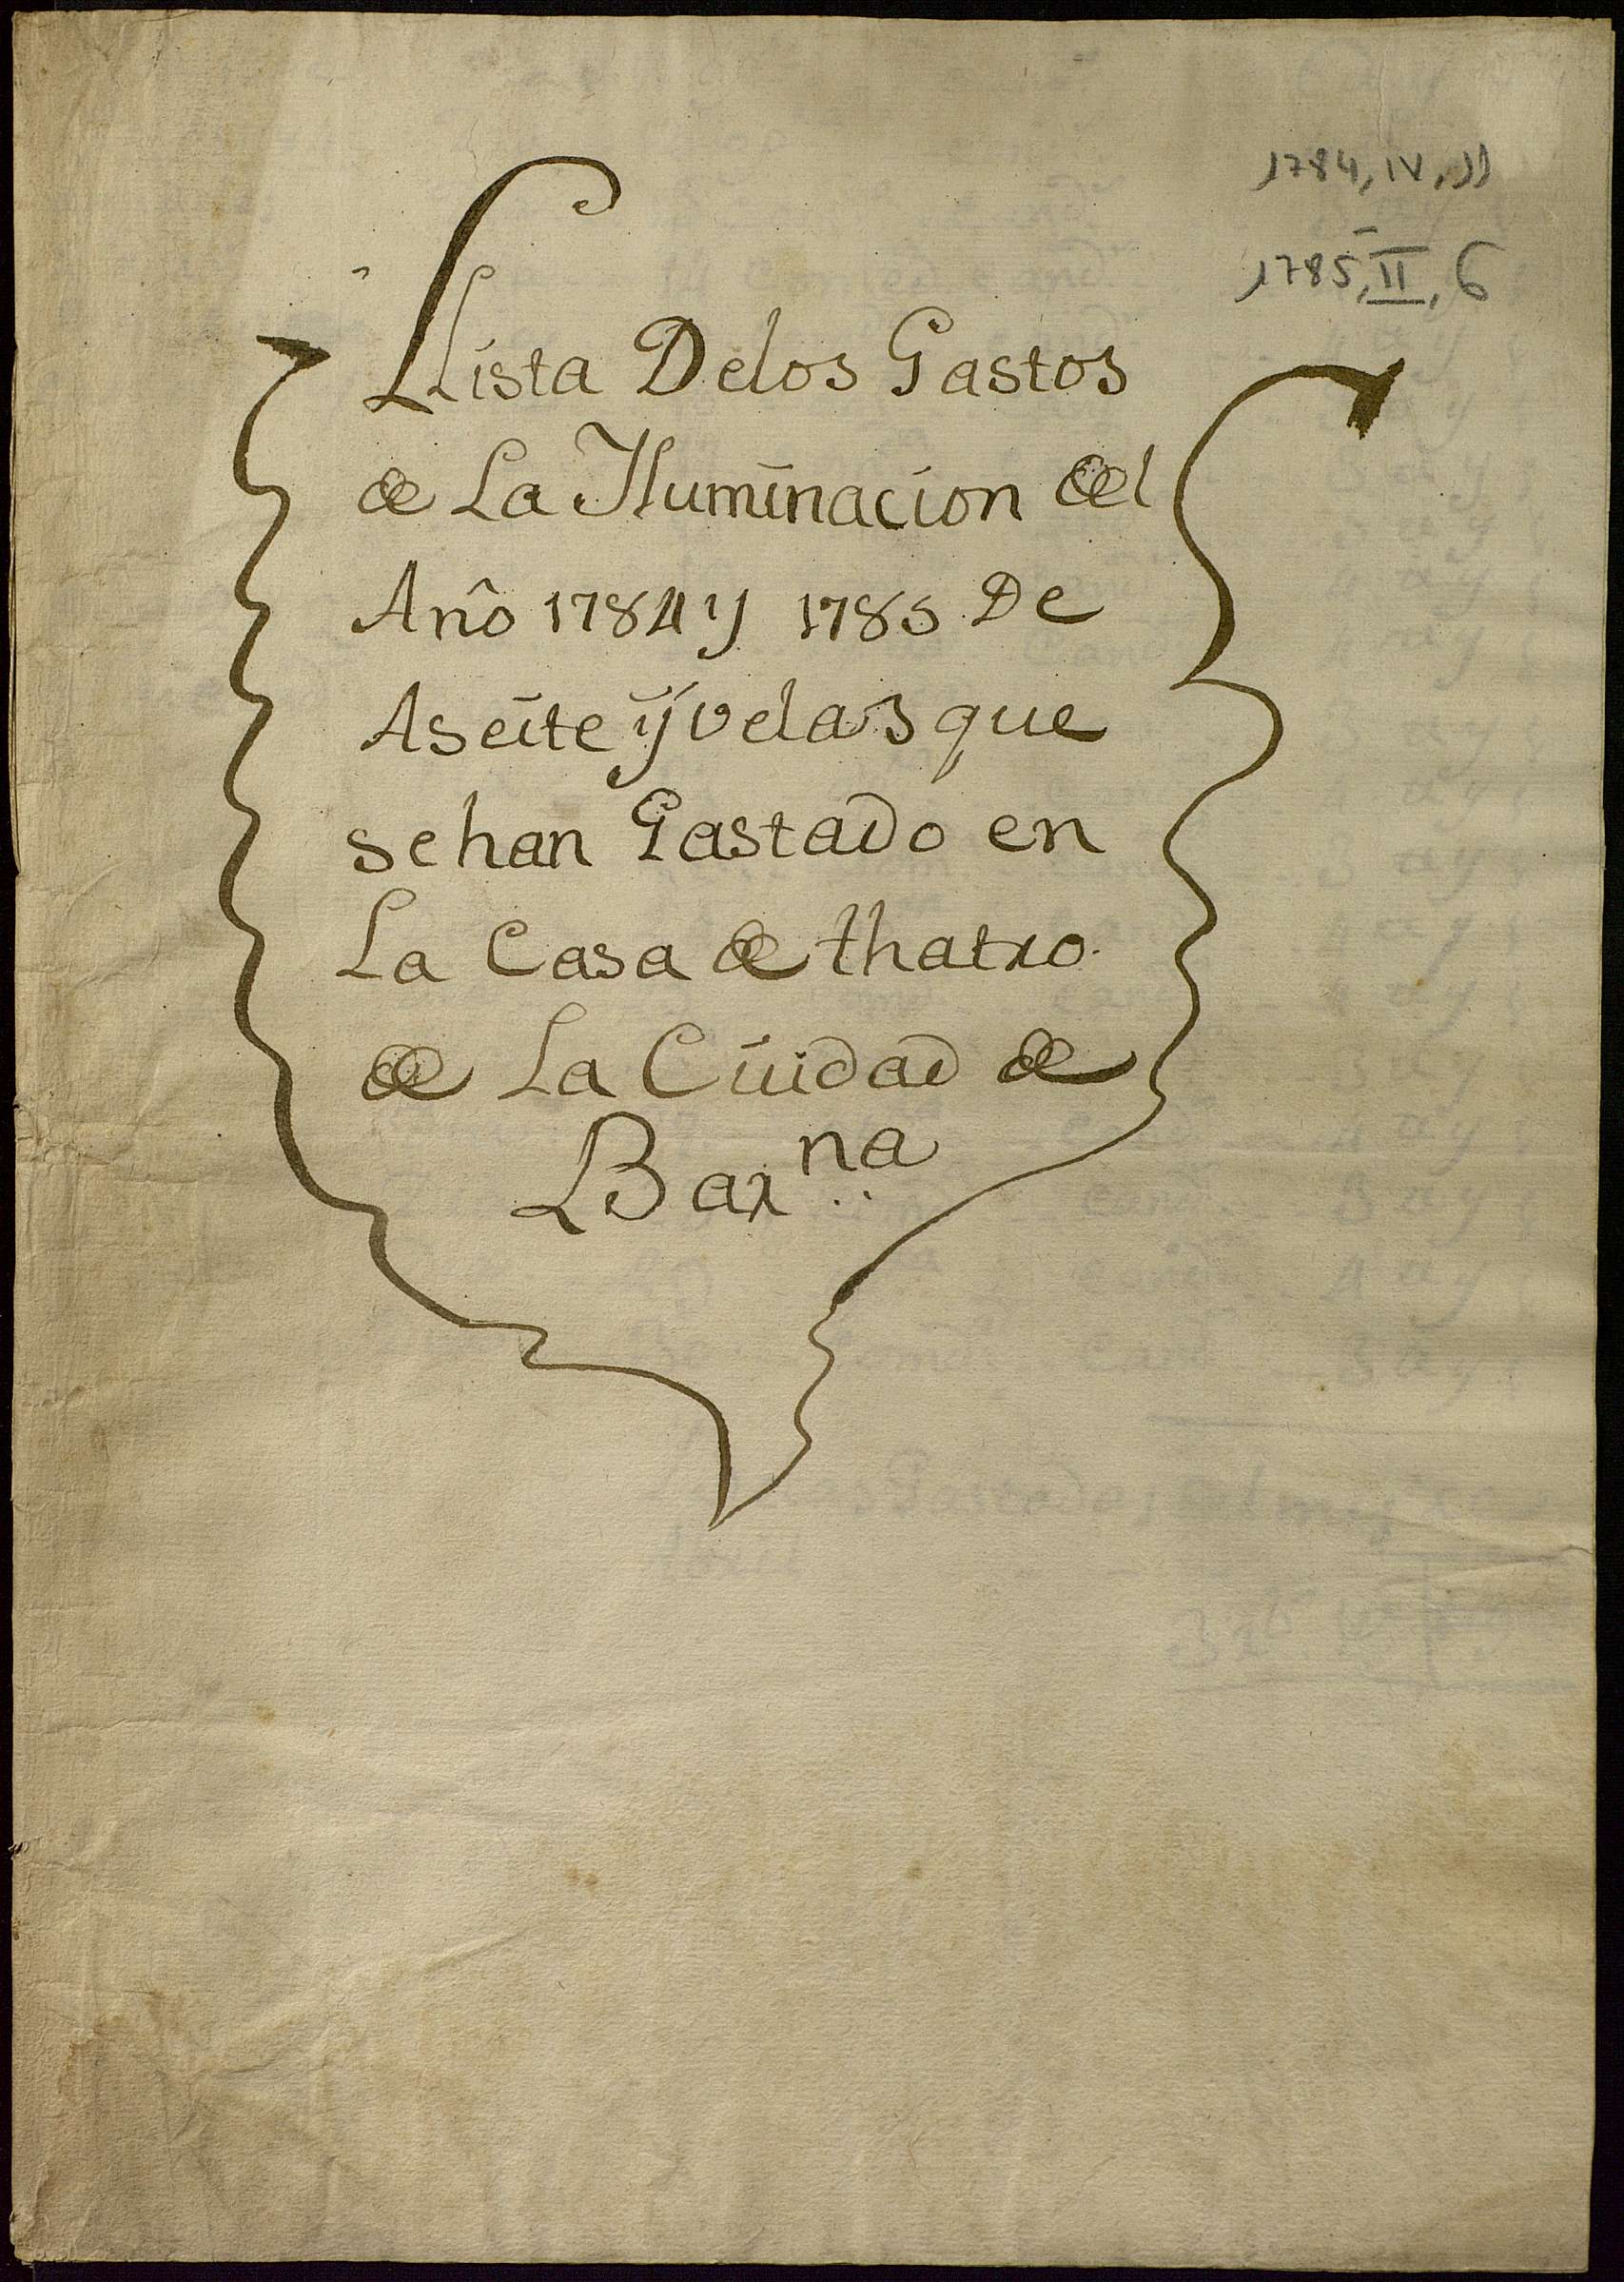 1784, IV, 11
1785, II, 6
Llista Delos Gastos
de La Iluminacion del
Año 1784 y 1785 De
Aseite ÿ velas que
se han Gastado en
La Casa de thatro.
de La Ciudad de
Barna